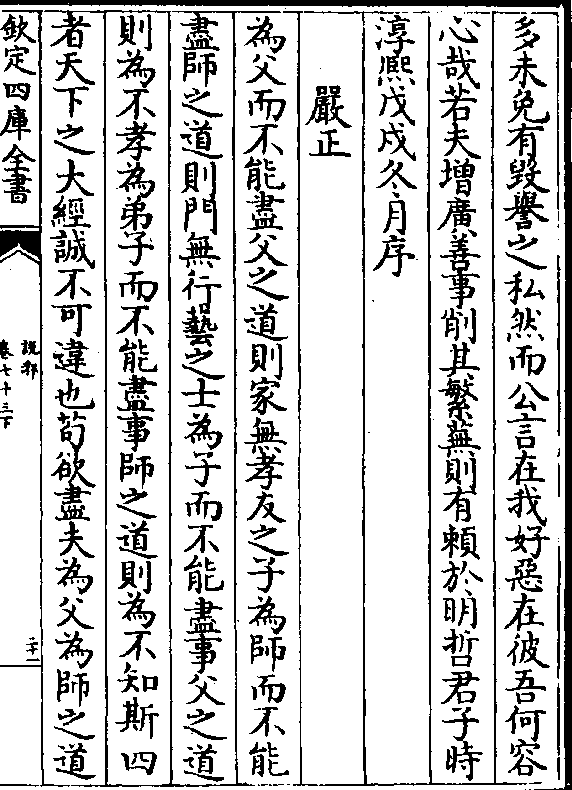 多未免有毀譽之私然而公言在我好惡在彼吾何容
心哉若夫增廣善事削其繁蕪則有賴於明哲君子時
淳熙戊戍冬月序
嚴正
為父而不能盡父之道則家無孝友之子為師而不能
盡師之道則門無行藝之士為子而不能盡事父之道
則為不孝為弟子而不能盡事師之道則為不知斯四
者天下之大經誠不可違也茍欲盡夫為父為師之道
欽定四庫全書
說郛
卷七十三下
二十一